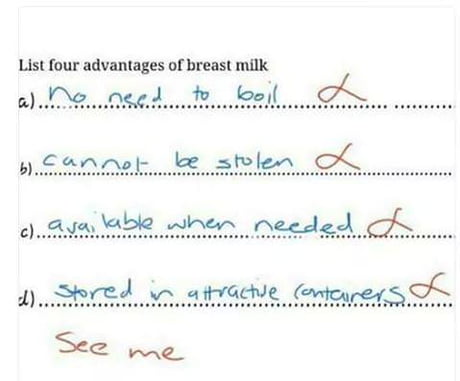 List four advantages of breast milk
a) no need to boil
b) cannot be stolen
c) available when needed
d) stored in attractive containers
See me